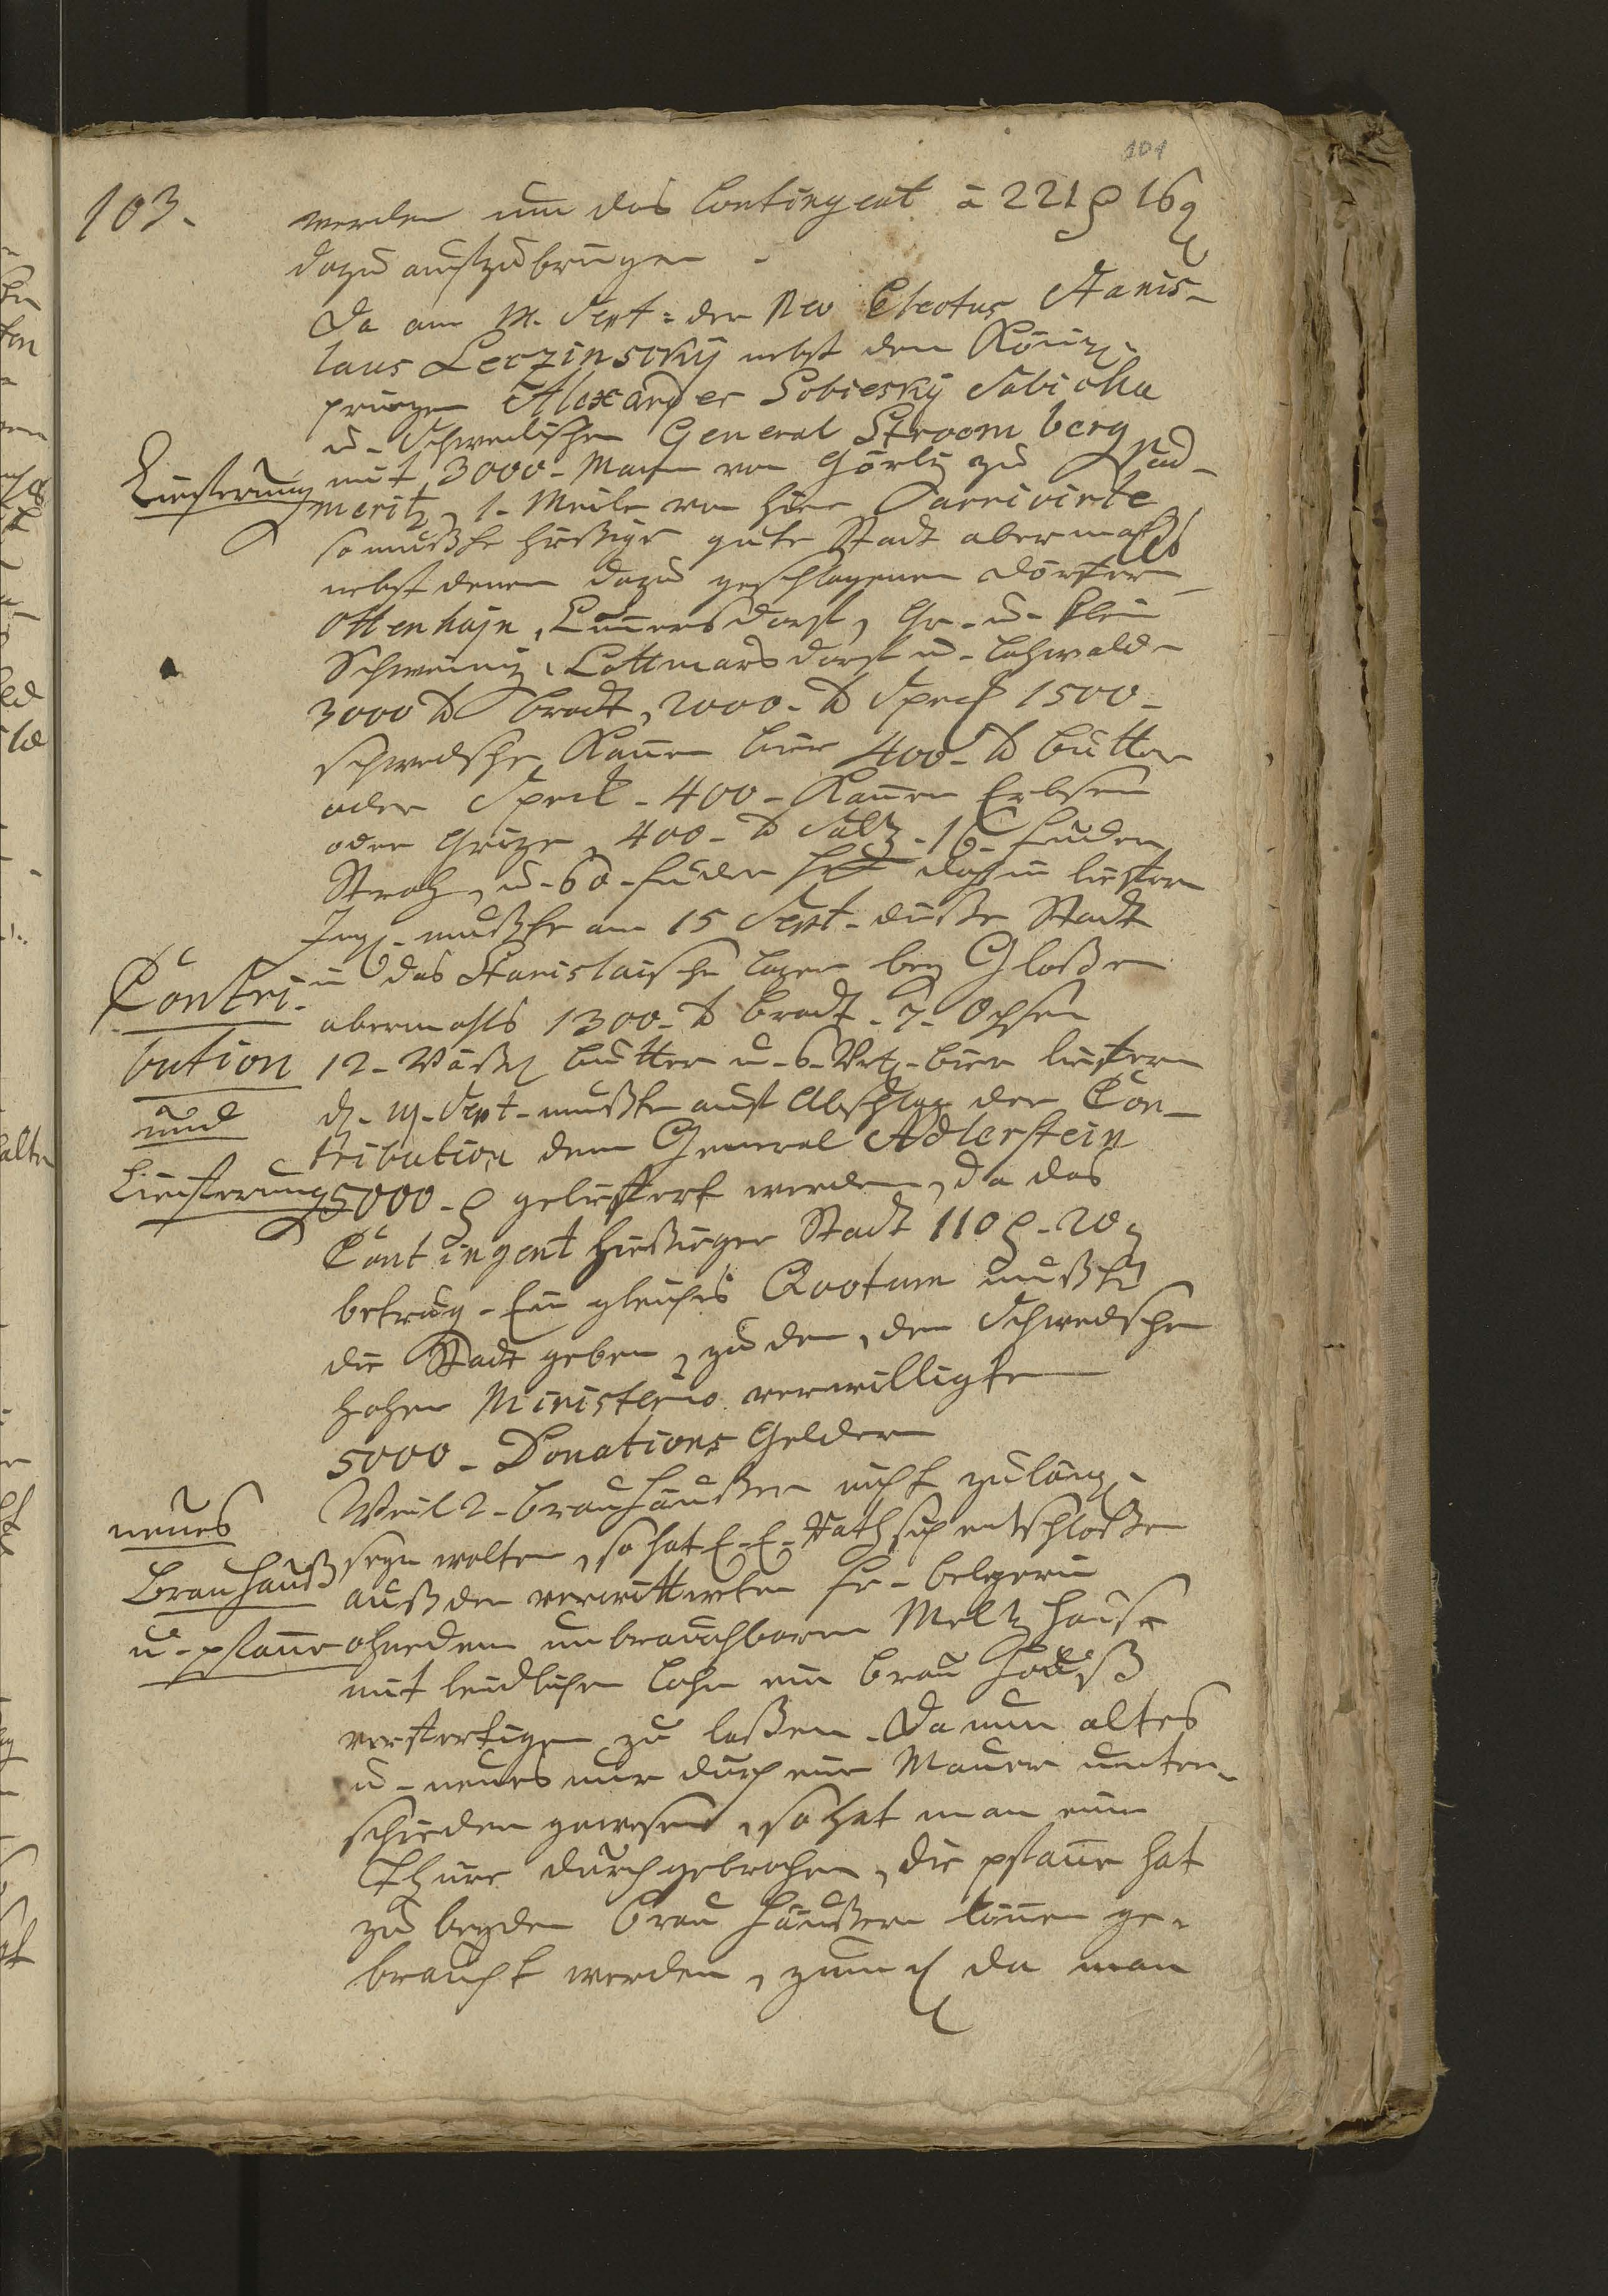 101
103.
werden um das Contingent â 221 16
dazu auffzubringen -
Da am 14. Sept: der Neo Electus Stanis-
laus Leczinscky nebst den Königl.
printzen Alexander Sobiesky
u. Schwedischen General Stroomberg
Lieferung
mit 3000. Mann von Görlitz zu Rad-
meritz, 1. Meile von hier arrivirte
so mußte hießige gute Stadt abermahls
nebst denen dazu geschlagenen Dörfern
Ottenhajn, Cunnersdorf, Gr. u. Klein
Schweinitz, Cottmarsdorf u. Lahwalde
3000 ℔ Brodt, 2000. ℔ 1500.
schwedsche Kannen Bier 400. ℔ Butter
oder Speck. 400. Kannen Erbsen
oder Grütze, 400. ℔ Saltz. 16. Fuder
Stroh, u. 60. Fuder dahin liefern
Ingl. mußte am 15 Sept. dieße Stadt
Contri-
in das Stanislaische Lager bey Gloßen
abermahls 1300. ℔ Brodt. 7. Ochsen
bution
12. Väßl Butter u. 6. Vrtl. Bier liefern
und
d. 19. Sept. mußte auf Abschlag der Con-
tribution dem General Adlerstein
Lieferung
5000. geliefert werden, da das
Contingent hießiger Stadt 110. 20
betrug. Ein gleiches Qvotum mußte
die Stadt geben, zu den, den Schwedschen
hohen Ministerio verwilligten
5000. Donations Geldern
Weil 2. Brauhäußer nicht zulängl.
neues
seyn wolten, so hat E. E. Rath sich entschloßen
Brauhauß
auß der verwittweten Fr.
u. pfanne
ohnedem unbrauchbaren Meltzhause
mit leidlichen Lohn ein Brau Hauß
verfertigen zu laßen. Da nun altes
u. neues nur durch eine Mauer unter-
schieden gewesen, so hat man eine
Thüre durchgebrochen, die pfanne hat
zu beyden Brau Häußern können ge-
braucht werden, zumahl da man